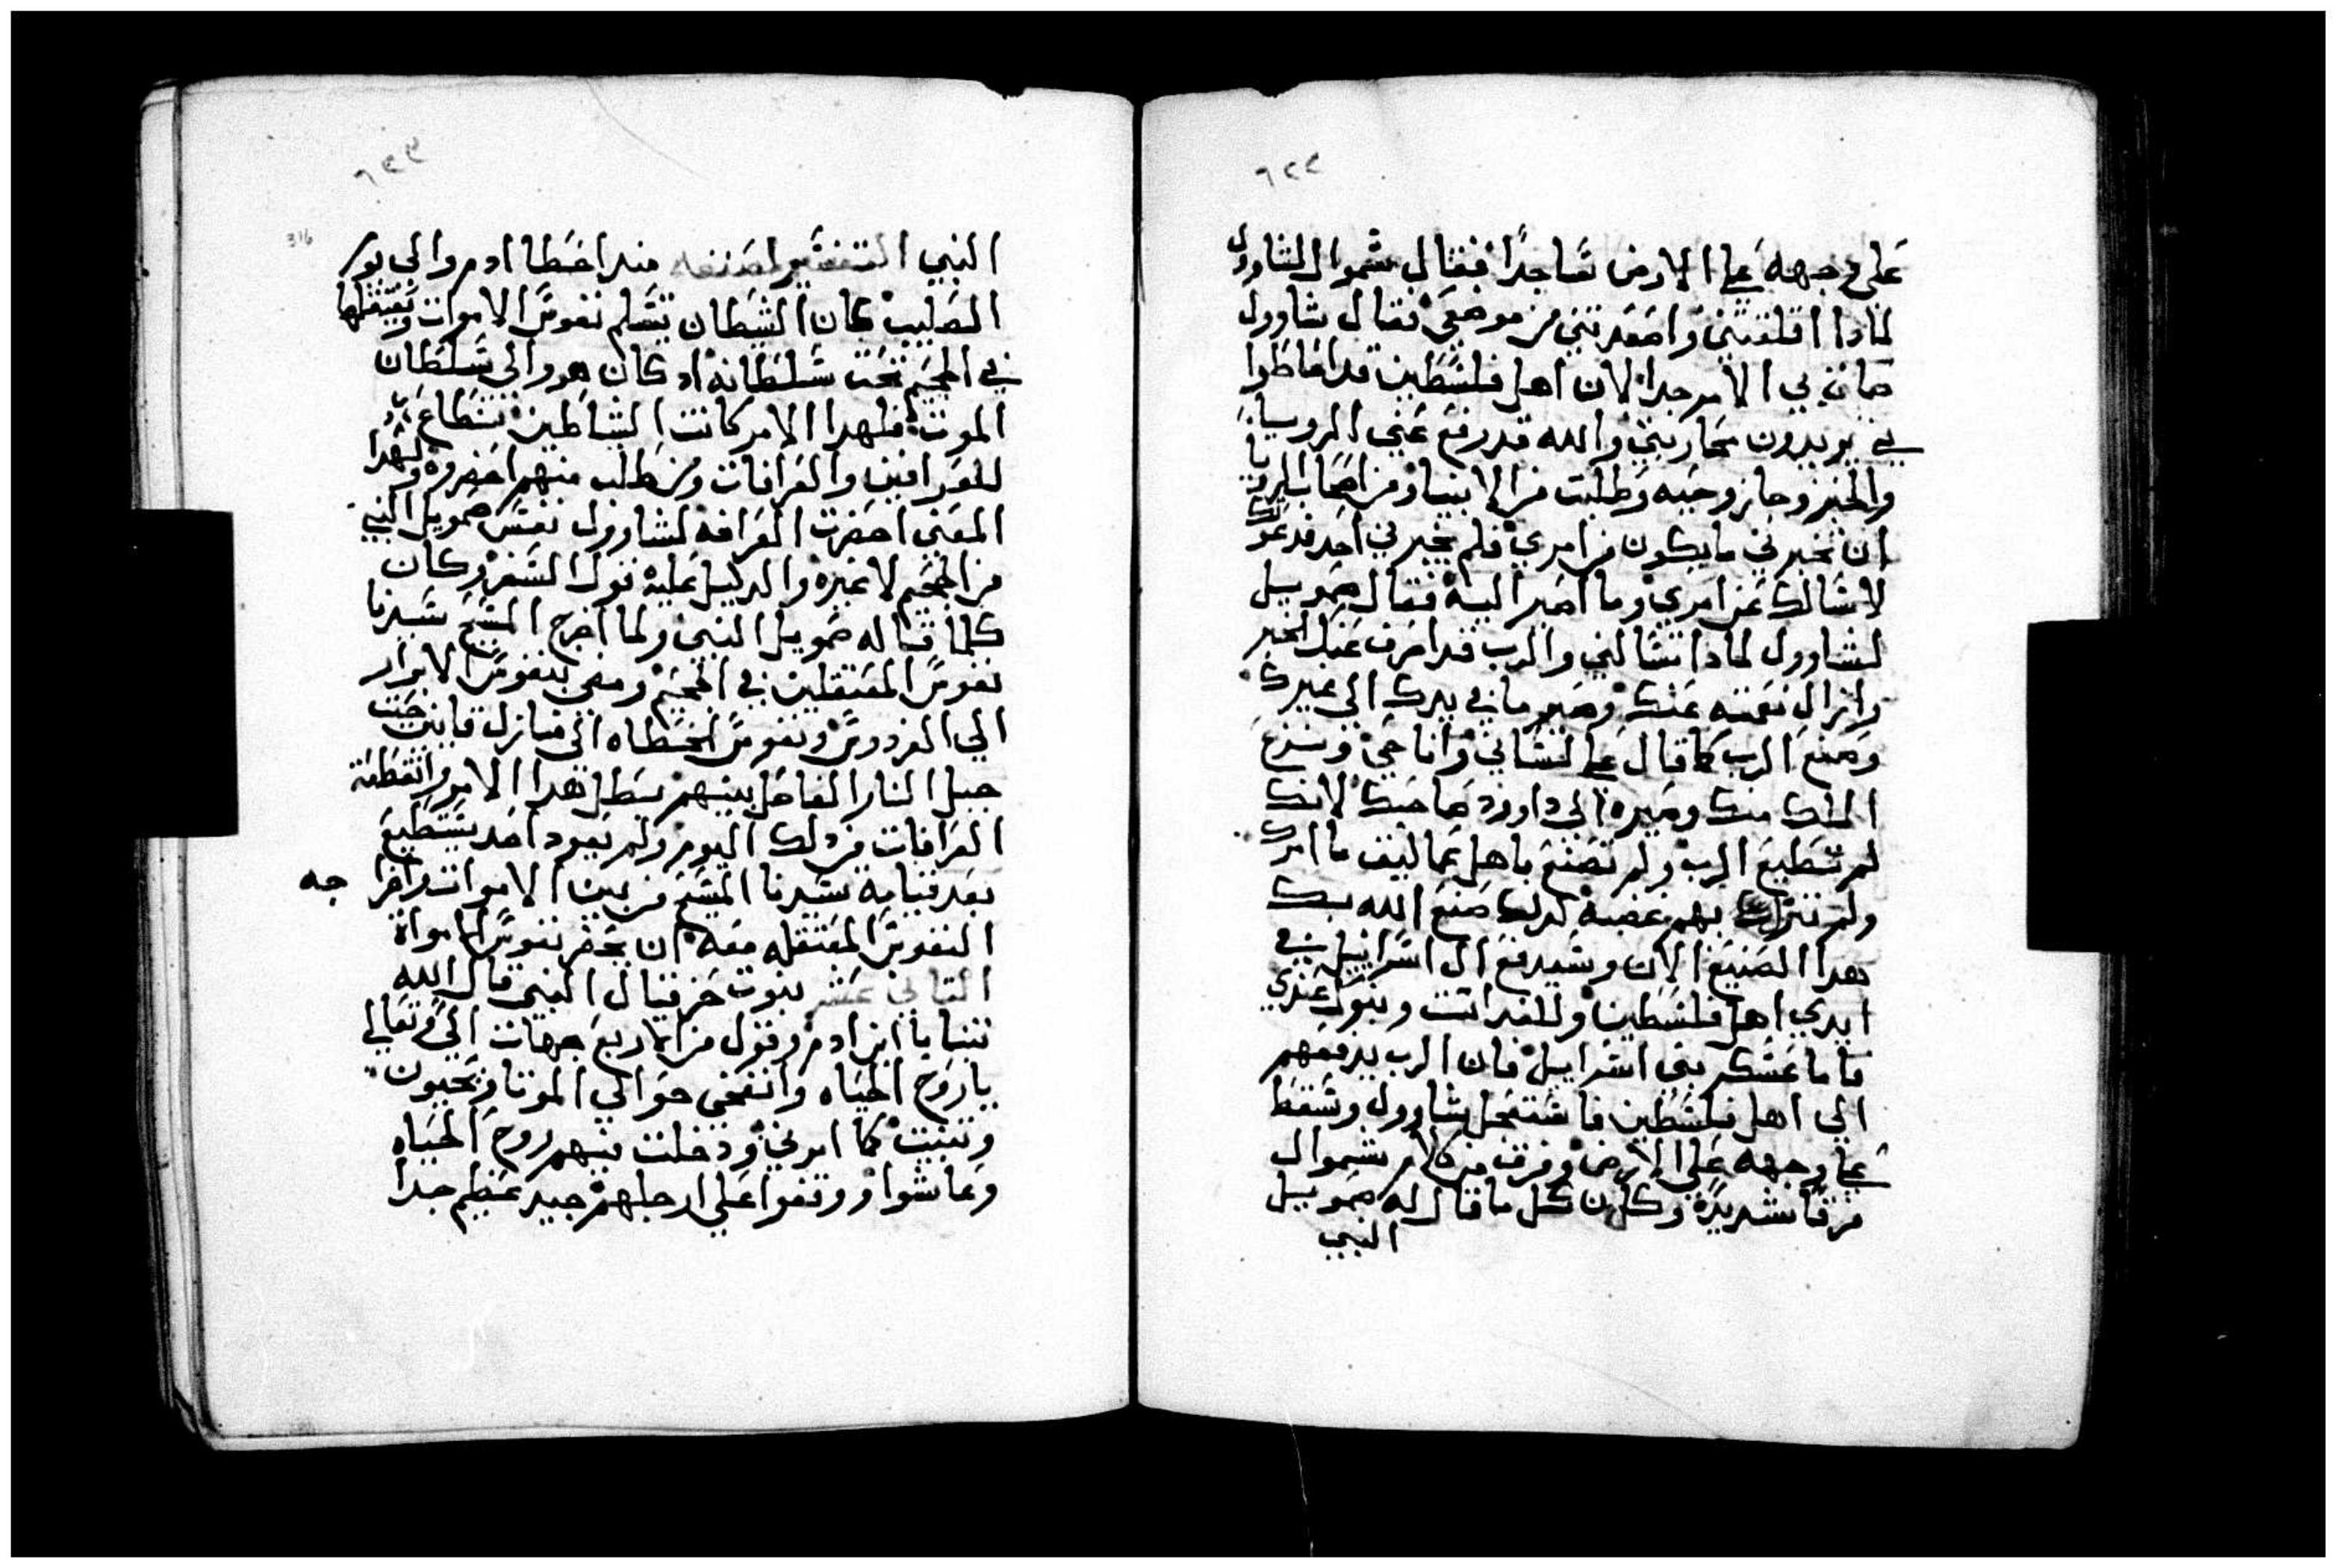 ٦٢٢
على وجهه علي الارض ساجدًا فقال شموال لشاوول
لمادا اقلقتني واصعدتني من موضعي فقال شاوول
ضاق بي الامر جدا لان اهل فلسطين قد احاطوا
بي يريدون محاربتي والله قد رفع عني الرويا
والخبز وطلبت من الانبياء ومن اصحاب الرويا
ان تخبرني مايكون من امري فلم يخبرني احد فدعوتك
لاسالك عن امري وما اصير اليه فقال صمويل
لشاوول لمادا تسالني والرب قد اصرف عنك الخير
وازال نعمته عنك وصير ما في يدك الى غيرك
وصنع الرب كما قال على لساني وانا حي ونزع
الملك منك وصيره الى داوود صاحبك لانك
لم تطيع الرب ولم تصنع باهل عماليق ما امرك
ولم تنزل بهم غضبه كدلك صنع الله بك
هدا الصنيع الان وسيدفع ال اسراييل في
ايدي اهل فلسطين وللغد انت وبنوك عندي
فاما عسكر بني اسراييل فان الرب يدفعهم
الي اهل فلسطين فاستعجل شاوول وسقط
على وجهه على الارض وفرق من كلام شموال
فرقا شديدة وكان كل ما قال له صمويل
النبي
٦٢٣
316
النبي التفسير مند اخطا ادم والى يوم
الصليب كان الشيطان يتسلم نفوس الاموات ويعتقلها
في الجحيم تحت سلطانه اد كان هو والى سلطان
الموت فلهدا الامر كانت الشياطين تنطاع
للعرافين والعرافات ومن طلب منهم احضروه ولهدا
المعنى احضرت العرافه لشاوول نفس صمويل النبي
من الجحيم لا غيره والدليل عليه قول السفر وكان
كلما قاله صمويل النبي ولما اخرج المسيح سيدنا
نفوس المعتقلين في الجحيم ومضى بنفوس الابرار
الي الفردوس ونفوس الخطاه الى منازل قايين تحت
جبل النار الفاصل بينهم بطل هدا الامر وانقطعت
العرافات من دلك اليوم ولم يعود احد يستطيع
بعد قيامة سيدنا المسيح من بين الاموات واخرا جه
النفوس المعتقله معه ان يحضر نفوس الاموات
التاني عشر نبوت حزقيال النبي قال الله
تنبا يا ابن ادم وقول من الاربع جهات الي تعالي
يا روح الحياه وانفخي حوالي الموتا ويحيون
وتنبيت كما امرني ودخلت فيهم روح الحياه
وعاشوا ووقفوا على ارجلهم جيد عظيم جدا